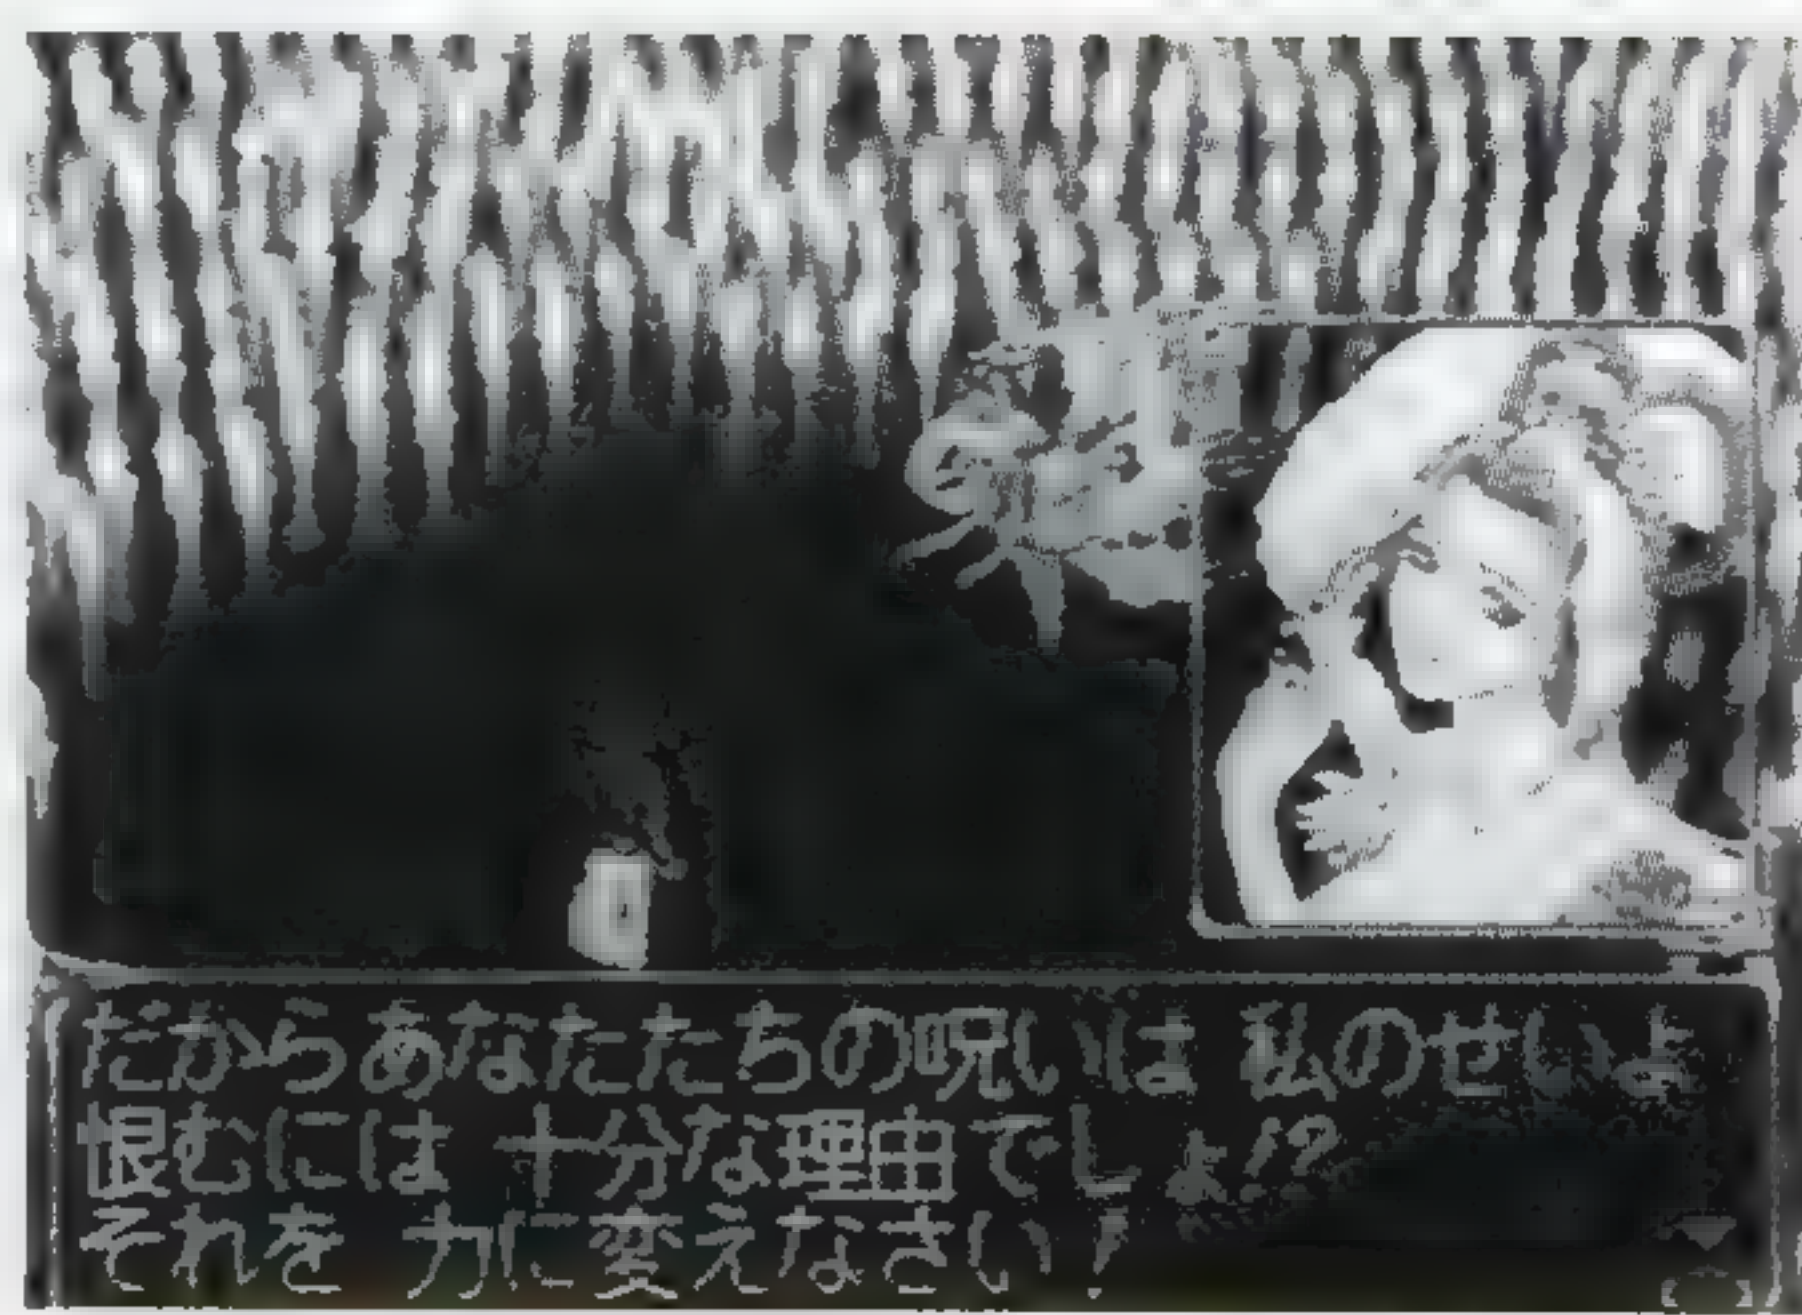 だからあなたたちの呪いは 私のせいよ
恨むには 十分な理由でしょ!?
それを 力に変えなさい!